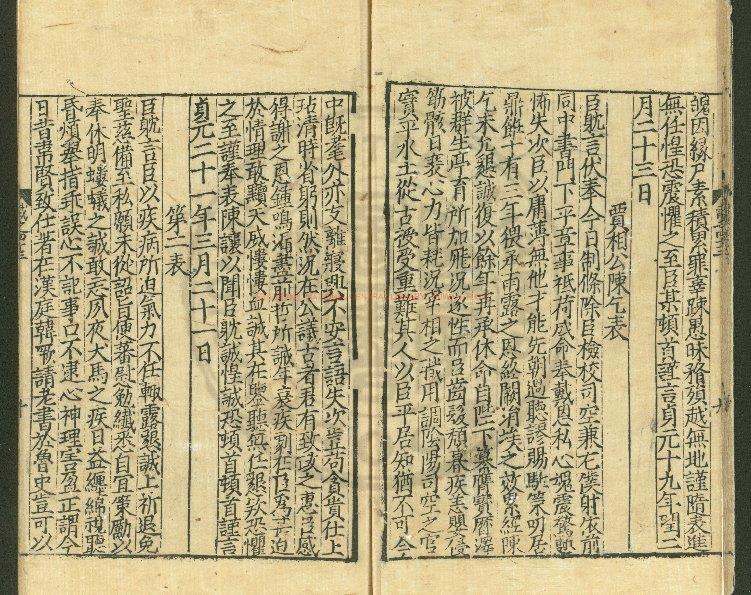 媿因緣尸素積累罪辜疎愚昧殞越無地謹隨表進
無任惶恐震懼之至臣某頓首謹言貞元十九年閏二
月二十三日
賈相公陳乞表
臣耽言伏奉今日制條除臣檢校司空兼右僕射依前
同中書門下平章事祗荷感命奉戴恩私心魂震驚動
怖失次臣以庸薄無他才能先朝過聽謬賜駈策明居
鼎飪十有三年猥承雨露之恩終闕涓埃之效累經陳
乞未允懇誠復以餘年再承休命自陛下纂膺寶曆澤
被群生亭育所加雖況遂性而臣齒髮頹暮疾恙嬰侵
筋骸日衰心力皆耗況宰相之職用調陰陽司空之官
實平水土從古授受重難其人以臣平居知猶不可今
中既耄外亦支離寢興不安言語失次豈苟貪貴仕上
玷清時省躬則然況在公議古者君有致政之惠臣感
得謝之恩鍾鳴漏盡前哲所誡年衰疾劇在臣爲甚迫
於情理敢黷天威慺慺血誠其在鑒聽無任懇欵恐懼
之至謹奉表陳讓以聞臣耽誠惶誠恐頓首頓首謹言
貞元二十一年三月二十一日
第二表
臣耽言臣以疾病所迫氣力不任輒露懇誠上祈退免
聖慈備至私願未從詔旨便蕃慰勉纖悉自宜策勵以
奉休明螻蟻之誠敢忘夙夜犬馬之疾日益纏綿視聽
昏煩舉指乖誤心不記事口不逮心神理害盈正謂今
日昔韋賢致仕著在漢庭韓厥請老書於魯史豈可以